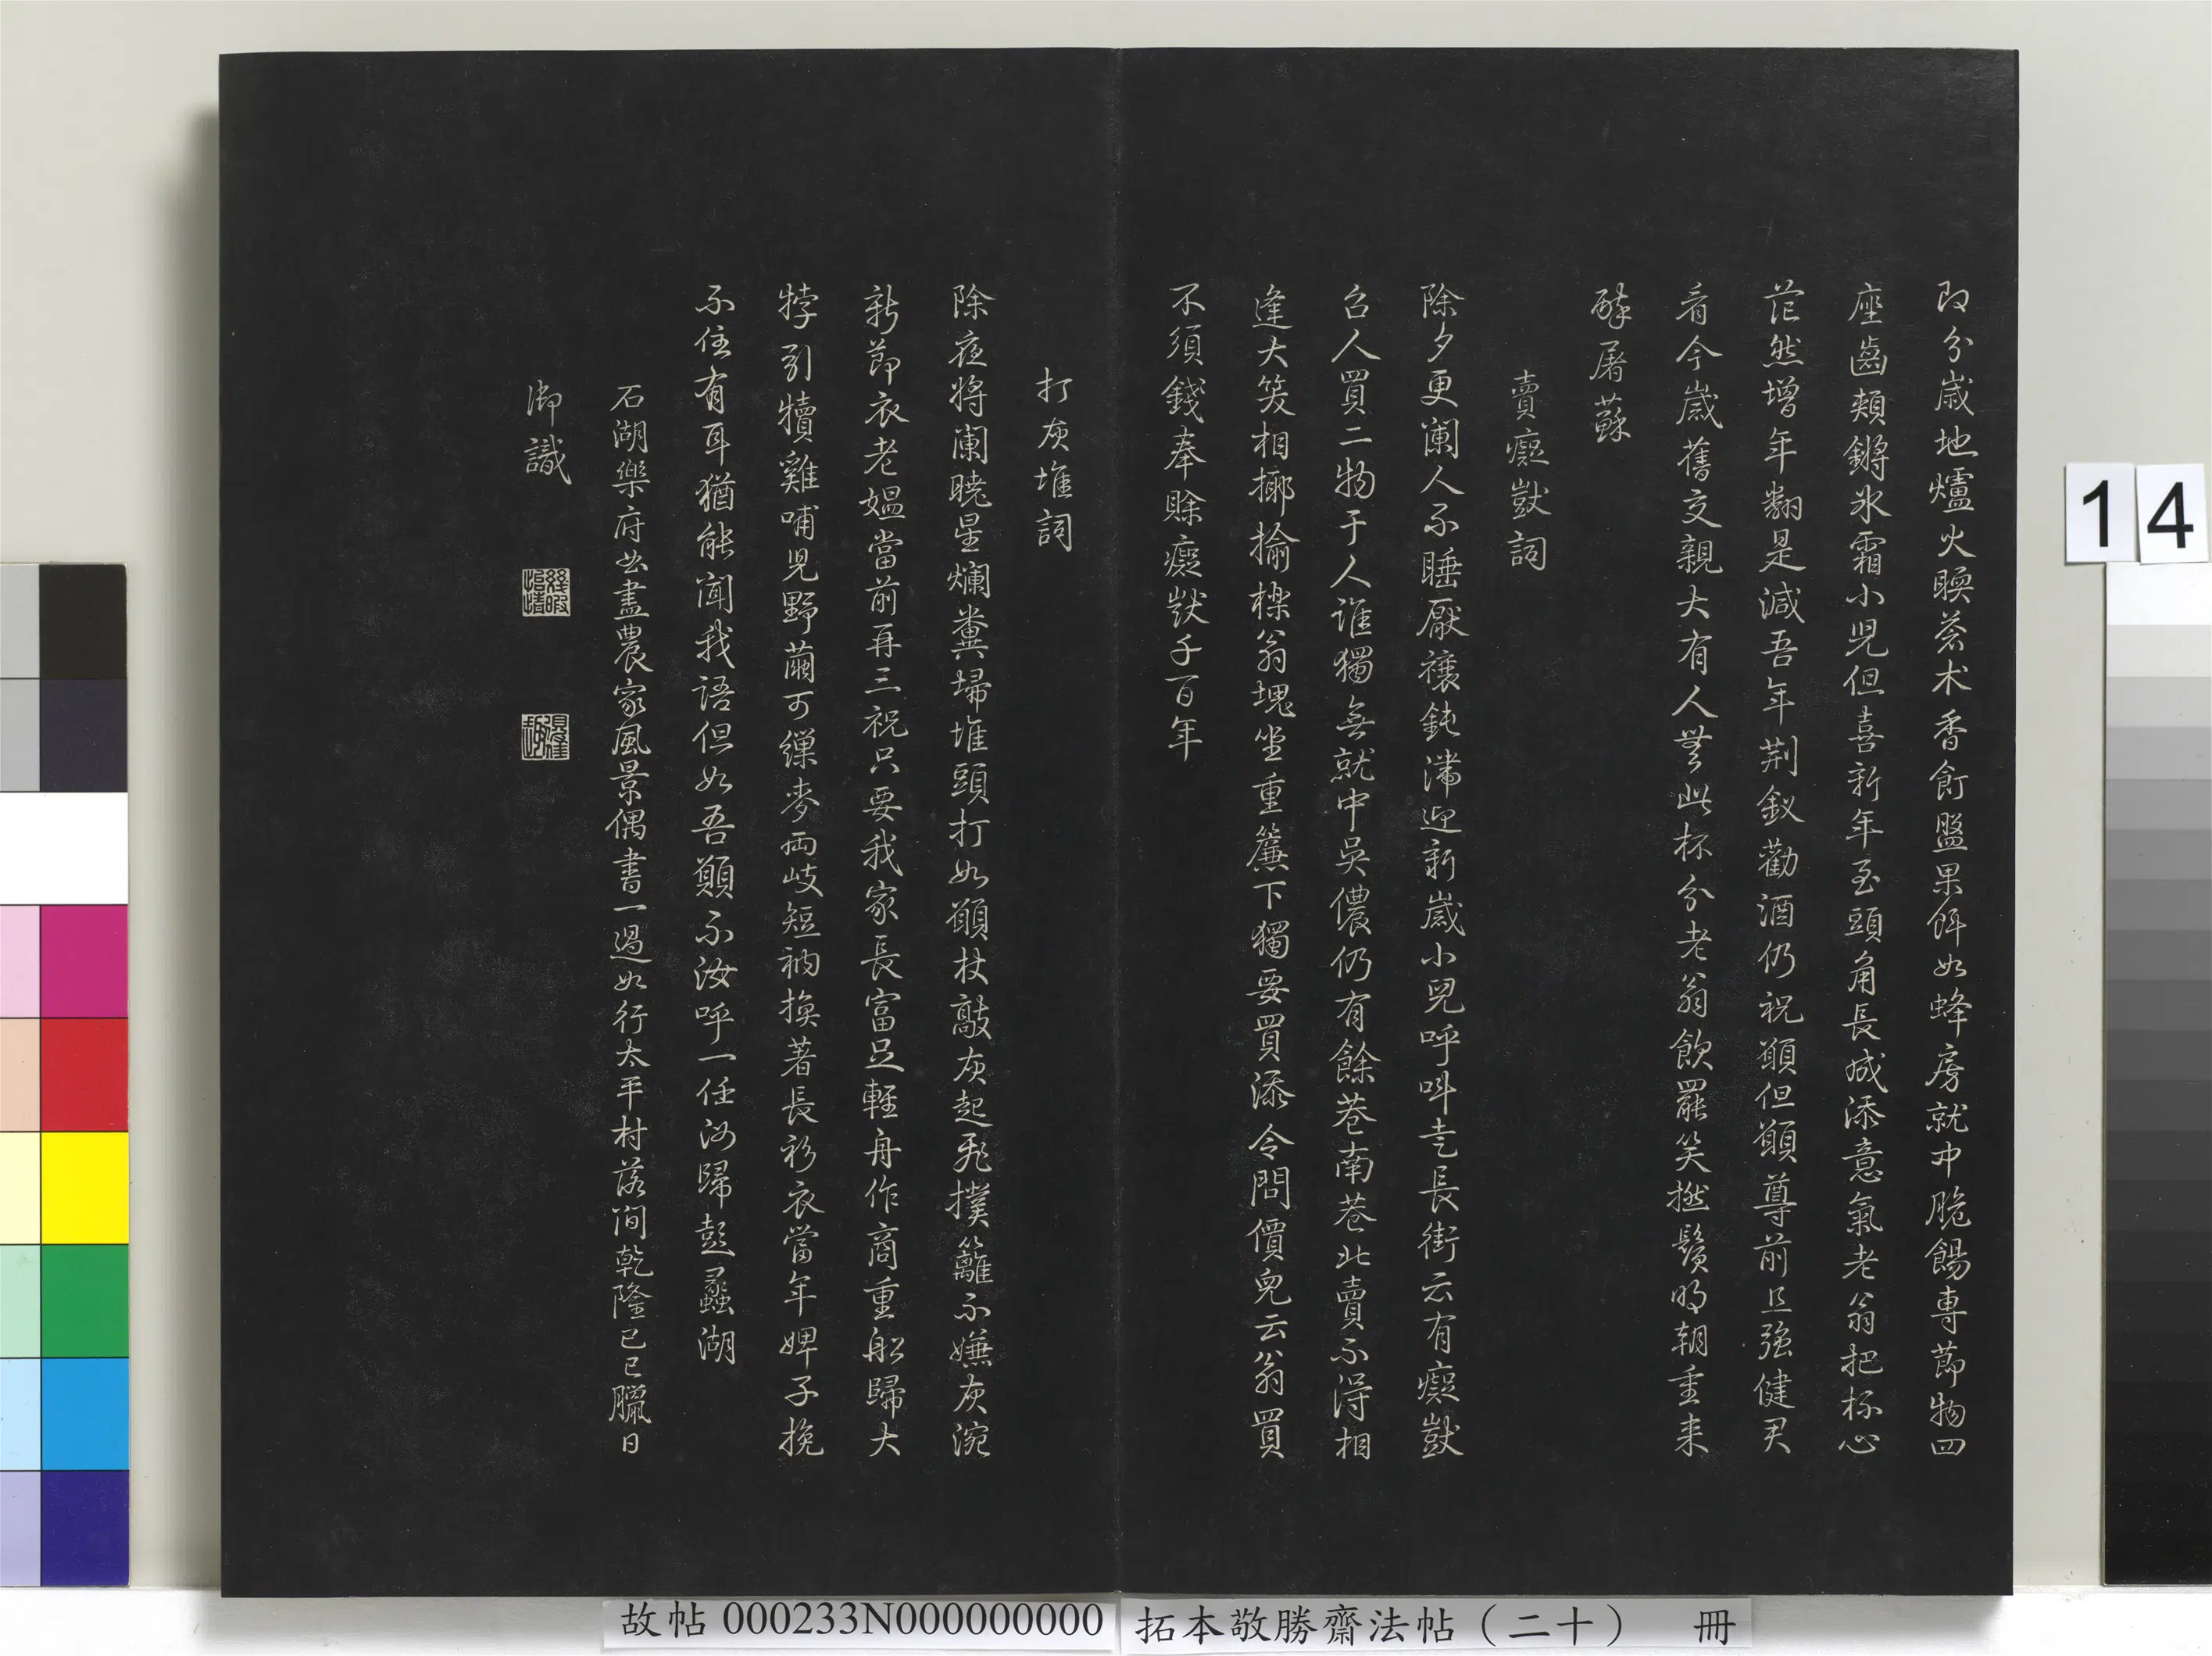 即分歲地爐火暖蒼术香飣盤果餌如蜂房就中脆餳專節物四
座齒頰鏘冰霜小兒但喜新年至頭角長成添意氣老翁把杯心
茫然增年翻是減吾年荊釵勸酒仍祝願但願尊前且強健君
看今歲舊交親大有人無此杯分老翁飲罷笑撚鬚明朝重来
醉屠蘇
賣癡獃詞
除夕更闌人不睡厭禳鈍滯迎新歲小兒呼叫走長街云有癡獃
召人買二物于人誰獨無就中吳儂仍有餘巷南巷北賣不得相
逢大笑相揶揄櫟翁塊坐重簾下獨要買添令問價兒云翁買
不須錢奉賒癡獃千百年
打灰堆詞
除夜將闌曉星爛糞掃堆頭打如願杖敲灰起飛撲籬不嫌灰涴
新節衣老媼當前再三祝只要我家長富足輕舟作商重船歸大
牸引犢雞哺兒野繭可繅麥兩岐短衲換著長衫衣當年婢子挽
不住有耳猶能聞我語但如吾願不汝呼一任汝歸彭蠡湖
石湖樂府曲盡農家風景偶書一過如行太平村落間乾隆己巳臘日
御識
14
故帖000233N000000000
拓本敬勝齋法帖(二十) 冊